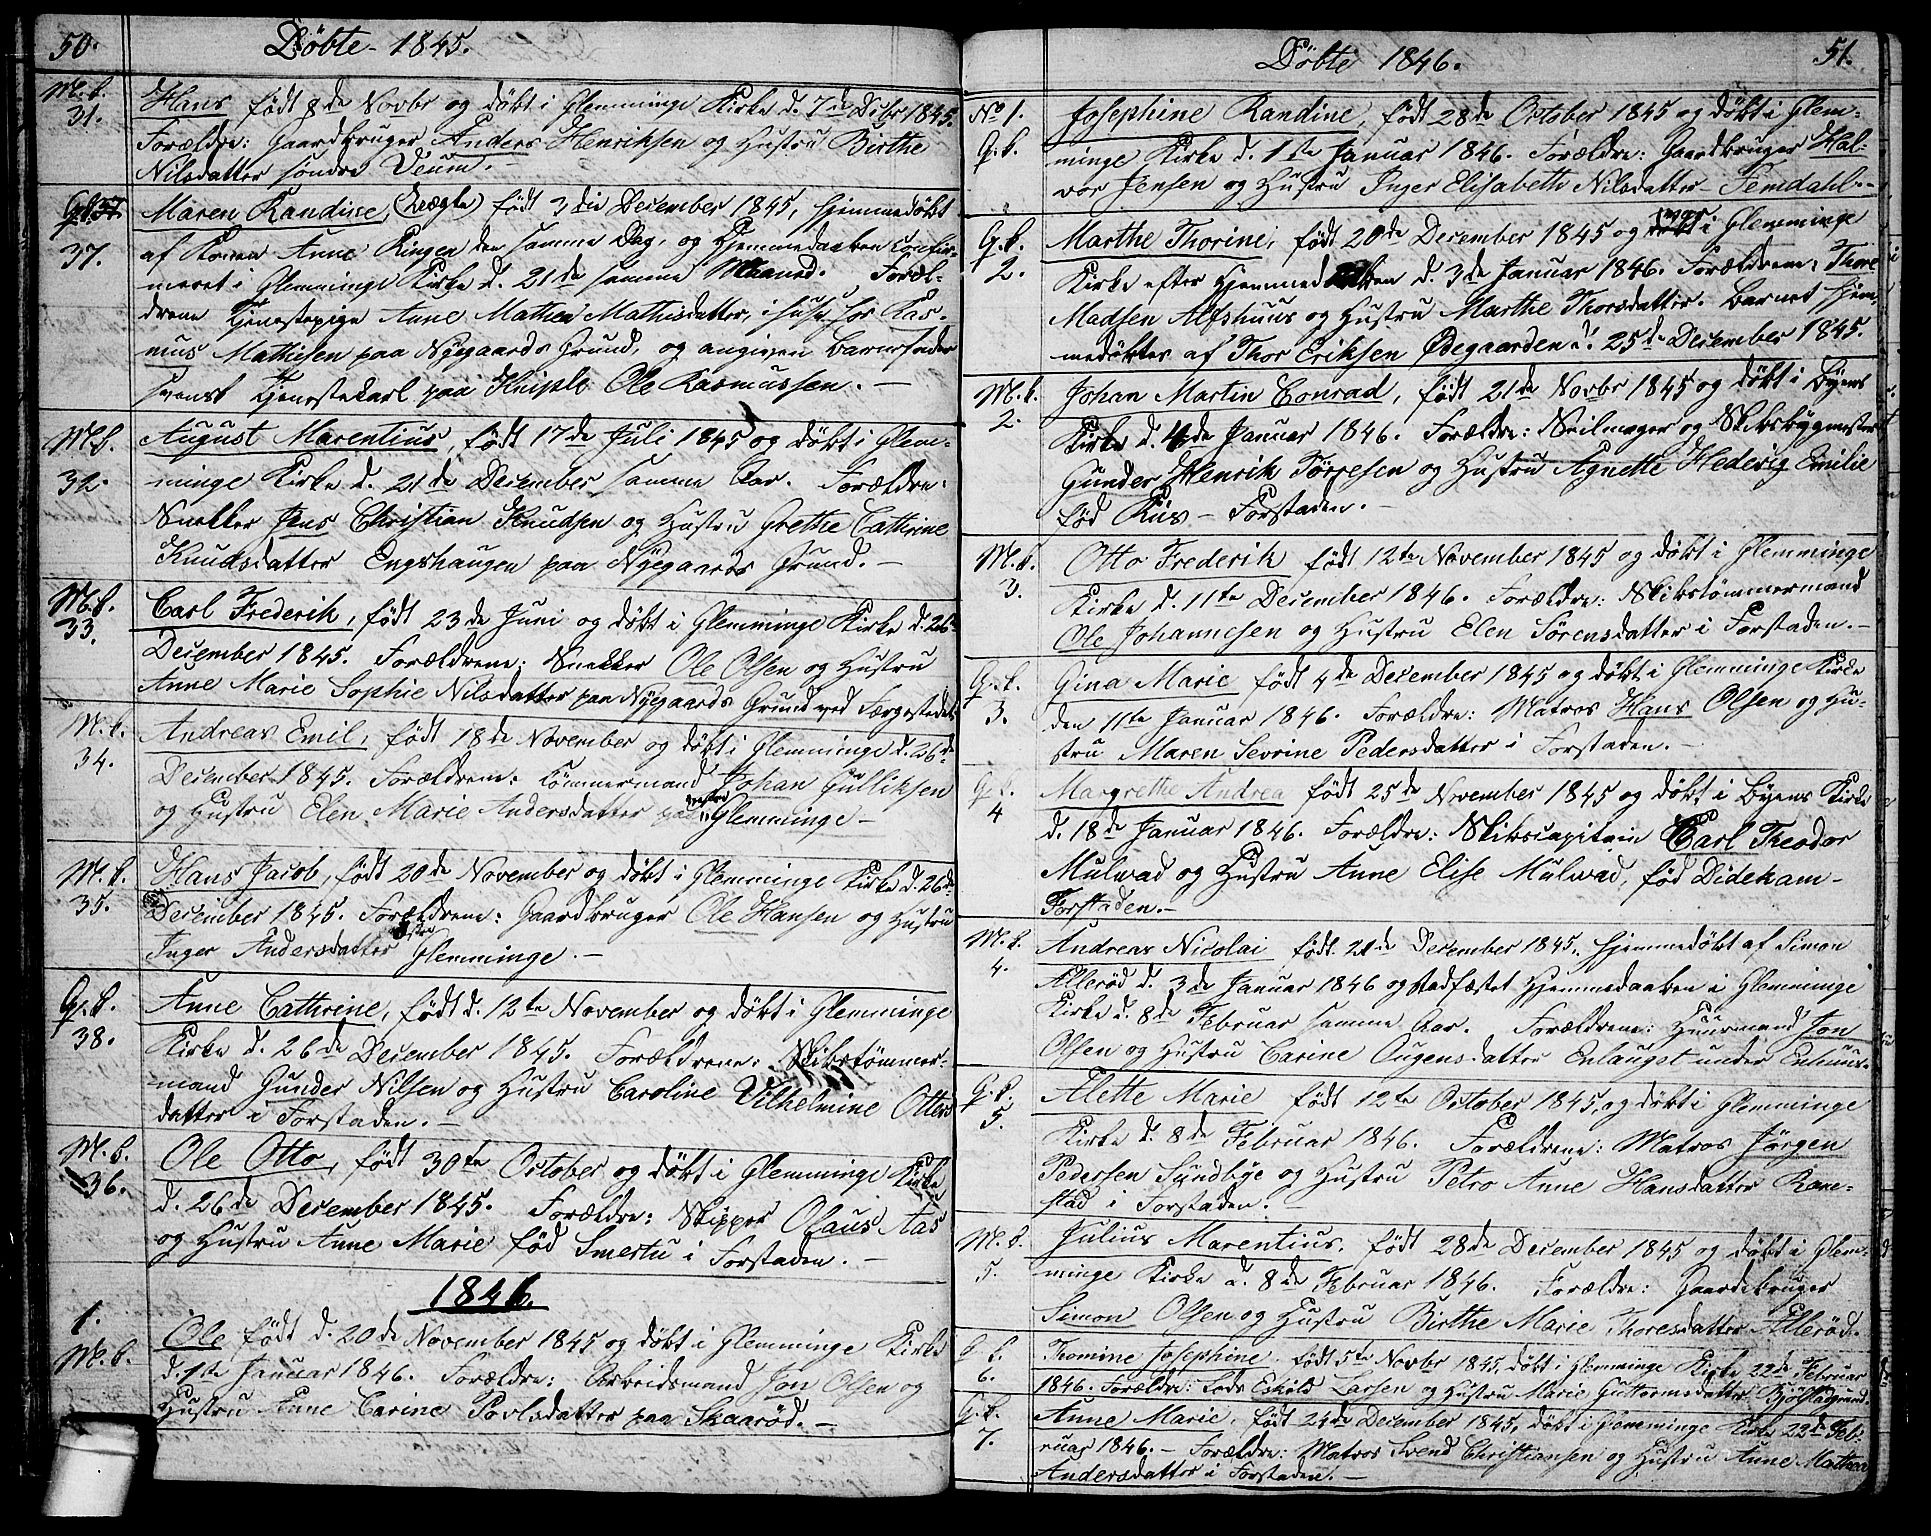 50.
Døbte 1845.
M. b.
31.
Hans født 8de Novbr og døbt i Glemminge Kirke d. 7de Decbr 1845.
Forældre: Gaardbruger Anders Henriksen og Hustru Birthe
Nilsdatter søndre Veum.
37.
Maren Randine, (Uægte) født 3die December 1845, hjemmedøbt
af Konen Anne Ringen den samme Dag, og Hjemmedaaben confir-
meret i Glemminge Kirke d. 21de samme Maaned. Foræl-
drene Tjenestepige Anne Mathea Mathisdatter, i huset hos Ras-
mus Mathiesen paa Nyegaards Grund, og angiven Barnefader
svensk Tjenestekarl paa Kniple Ole Rasmussen. —
M. b.
32.
August Marentius, født 17de Juli 1845 og døbt i Glem-
minge Kirke d. 21de December samme Aar. Forældre:
Snekker Jens Christian Knudsen og Hustru Grethe Cathrine
Knudsdatter Engshaugen paa Nyegaards Grund. —
M. b.
33.
Carl Frederik, født 23de Juni og døbt i Glemminge Kirke d. 26de
December 1845. Forældrene: Snekker Ole Olsen og Hustru
Anne Marie Sophie Nilsdatter paa Nyegaards Grund ved Færgestedet
M. b.
34.
Andreas Emil, født 18de November og døbt i Glemminge d. 26de
December 1845. Forældrene: Tømmermand Johan Gulliksen
og Hustru Elen Marie Andersdatter paa Glemminge —
M. b.
35.
Hans Jacob, født 20de November og døbt i Glemminge Kirke d. 26de
December 1845. Forældrene: Gaardbruger Ole Hansen og Hustru
Inger Andersdatter Glemminge. —
G. b.
38.
Anne Cathrine, født d. 12te November og døbt i Glemminge
Kirke d. 26de December 1845. Forældrene: Skibstømmer-
mand Gunder Nilsen og Hustru Caroline Vilhelmine Otters
datter i Forstaden. —
M. b.
36.
Ole Otto, født 30te October og døbt i Glemminge Kirke
d. 26de December 1845. Forældre: Skipper Olaus Aas
og Hustru Anne Marie født Smertu i Forstaden. —
1846.
1.
M. b.
Ole født d. 20de November 1845 og døbt i Glemminge Kirke
d. 1te Januar 1846. Forældre: Arbeidsmand Jon Olsen og
Hustru Anne Carine Povlsdatter paa Skaarød. —
51.
Døbte 1846.
No 1.
G. b.
Josephine Randine, født 28de October 1845 og døbt i Glem-
minge Kirke d. 1ste Januar 1846. Forældre: Gaardbruger Hal-
vor Jensen og Hustru Inger Elisabeth Nilsdatter Femdahl. —
G. b.
2.
Marthe Thorine, født 20de December 1845 og i Glemminge
Kirke efter Hjemmedaaben d. 3de Januar 1846. Forældrene: Thore
Madsen Alfshuus og Hustru Marthe Thorsdatter. Barnet hjem-
medøbtes af Thor Eriksen Ødegaarden d. 25de December 1845.
M. b.
2.
Johan Martin Conrad, født 21de Novbr 1845 og døbt i Byens
Kirke d. 4de Januar 1846. Forældre: Seilmager og Skibsbygmester
Gunder Henrik Tørresen og Hustru Agnette Hedevig Emilie
fød Riis — Forstaden. —
M. b.
3.
Otto Frederik født 12te November 1845 og døbt i Glemminge
Kirke d. 11te December 1846. Forældre: Skibstømmermand
Ole Johannesen og Hustru Elen Sørensdatter i Forstaden. —
G. b.
3.
Gina Marie født 4de December 1845 og døbt i Glemminge Kirke
den 11te Januar 1846. Forældre: Matros Hans Olsen og Hu-
stru Maren Sevrine Pedersdatter i Forstaden. —
G. b.
4
Margrethe Andrea født 25de November 1845 og døbt i Byens Kirke
d. 18de Januar 1846. Forældre: Skibscapitain Carl Theodor
Mulvad og Hustru Anne Elise Mulvad, fød Didekam —
Forstaden. —
M. b.
4.
Andreas Nicolai født 21de December 1845. hjemmedøbt af Simon
Allerød d. 3de Januar 1846 og stadfæstet Hjemmedaaben i Glemminge
Kirke d. 8de Februar samme Aar. Forældrene: Huusmand Jon
Olsen og Hustru Carine Augensdatter Enlauget under Enhuus.
G. b.
5.
Alette Marie født 12te October 1845, og døbt i Glemminge
Kirke d. 8de Februar 1846. Forældrene: Matros Jørgen
Pedersen Sundbye og Hustru Petro Anne Hansdatter Rane-
stad i Forstaden. —
M. b.
5.
Julius Marentius. født 28de December 1845 og døbt i Glem-
minge Kirke d. 8de Februar 1846. Forældre: Gaardbruger
Simon Olsen og Hustru Birthe Marie Thoresdatter Allerød.
G. b.
6.
Thomine Josephine. født 5te Novbr 1845, døbt i Glemminge Kirke 22de Februar
1846. Forældre: Lods Eskild Larsen og Hustru Marie Guttormsdatter
G. b.
7.
Anne Marie, født 24de December 1845, døbt i Glemminge Kirke 22de Feb-
ruar 1846. — Forældre: Matros Svend Christiansen og Hustru Anne Mathea
Andersdatter i Forstaden. —